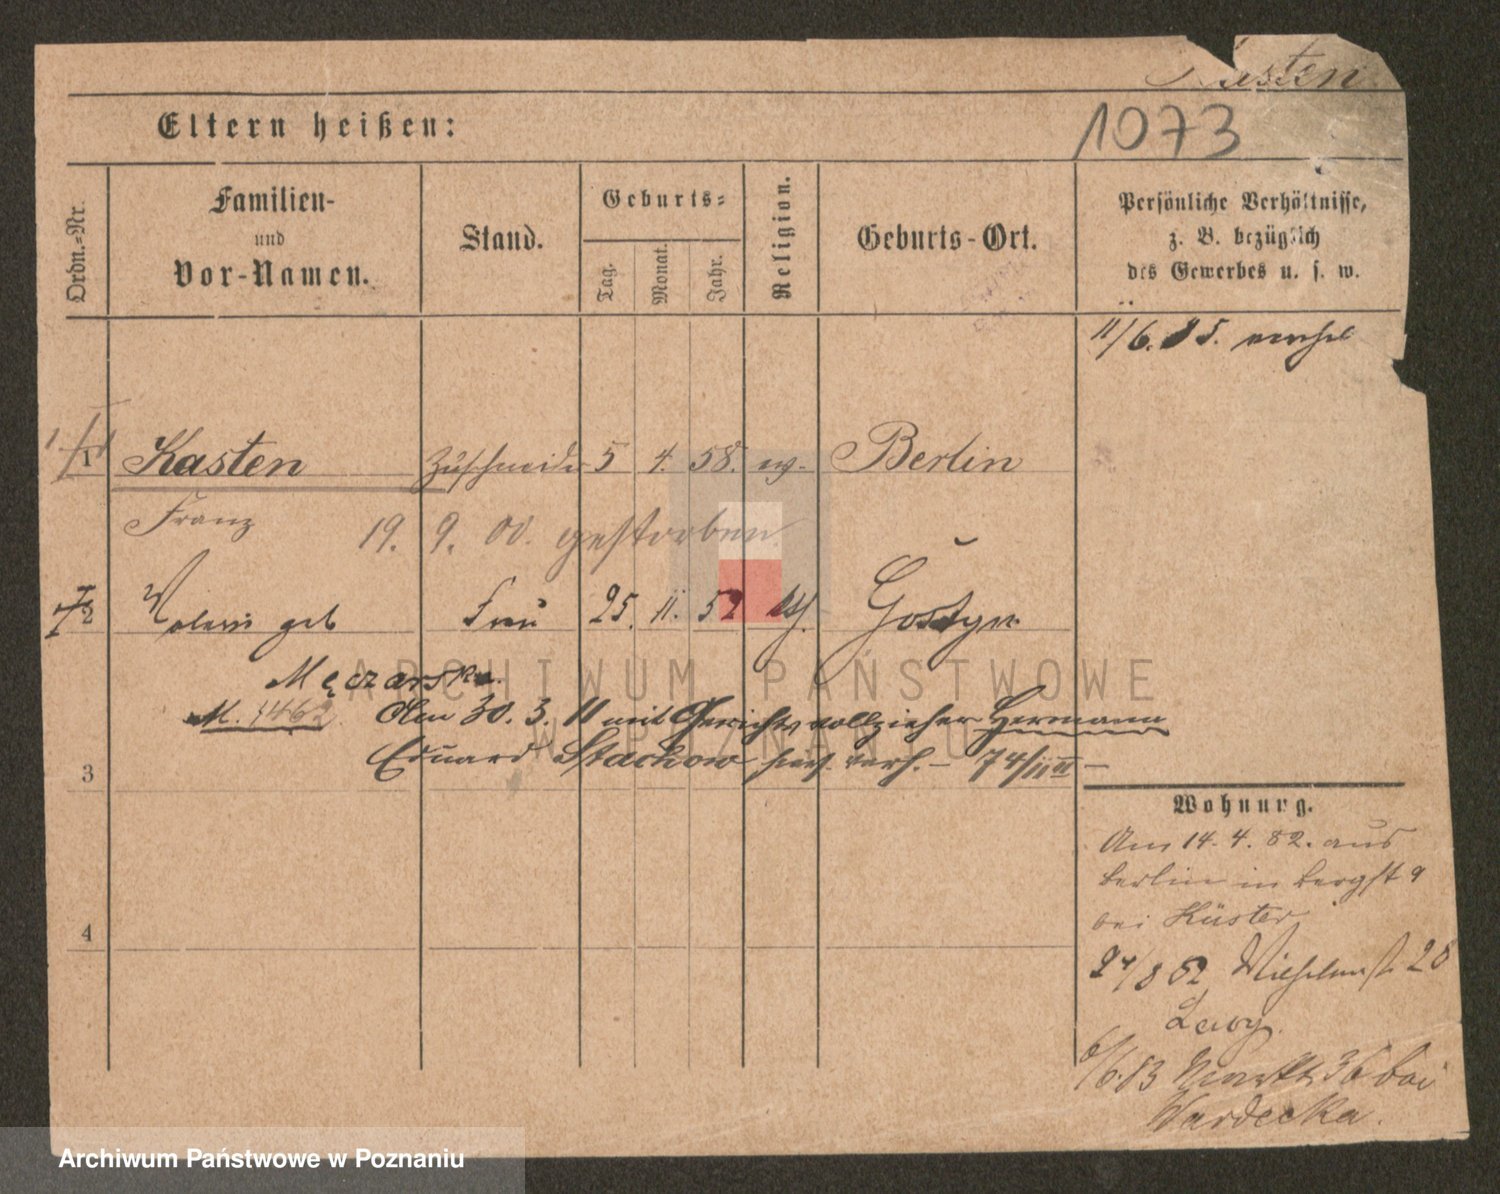 Kasten
Eltern heißen:
1073
Ordn.=Nr.
Familien-
und
Vor-Namen.
Stand.
Geburts=
Tag.
Monat.
Jahr.
Religion.
Geburts-Ort.
Persönliche Verhältnisse,
z. B. bezüglich
des Gewerbes u. s. w.
11/6. 85.
1 Kasten Zuschneider 5 4. 58. ev. Berlin
Franz 19. 9. 00. gestorben
2 geb Frau 25. 11. 52 kth. Gostyn
Męczarska.
M. 1462. Am 30. 3. 11 mit Gerichtsvollzieher Hermann
Eduard Stachow verh. – 74/11 –
3
4
Wohnung.
Am 14. 4. 82. aus
Berlin in Bergst 9
bei Küster
24/8 82 Wilhelmst. 28
Levy.
6/6. 83 Markt 36 bei
Wardecka.
ARCHIWUM PAŃSTWOWE
W POZNANIU
Archiwum Państwowe w Poznaniu